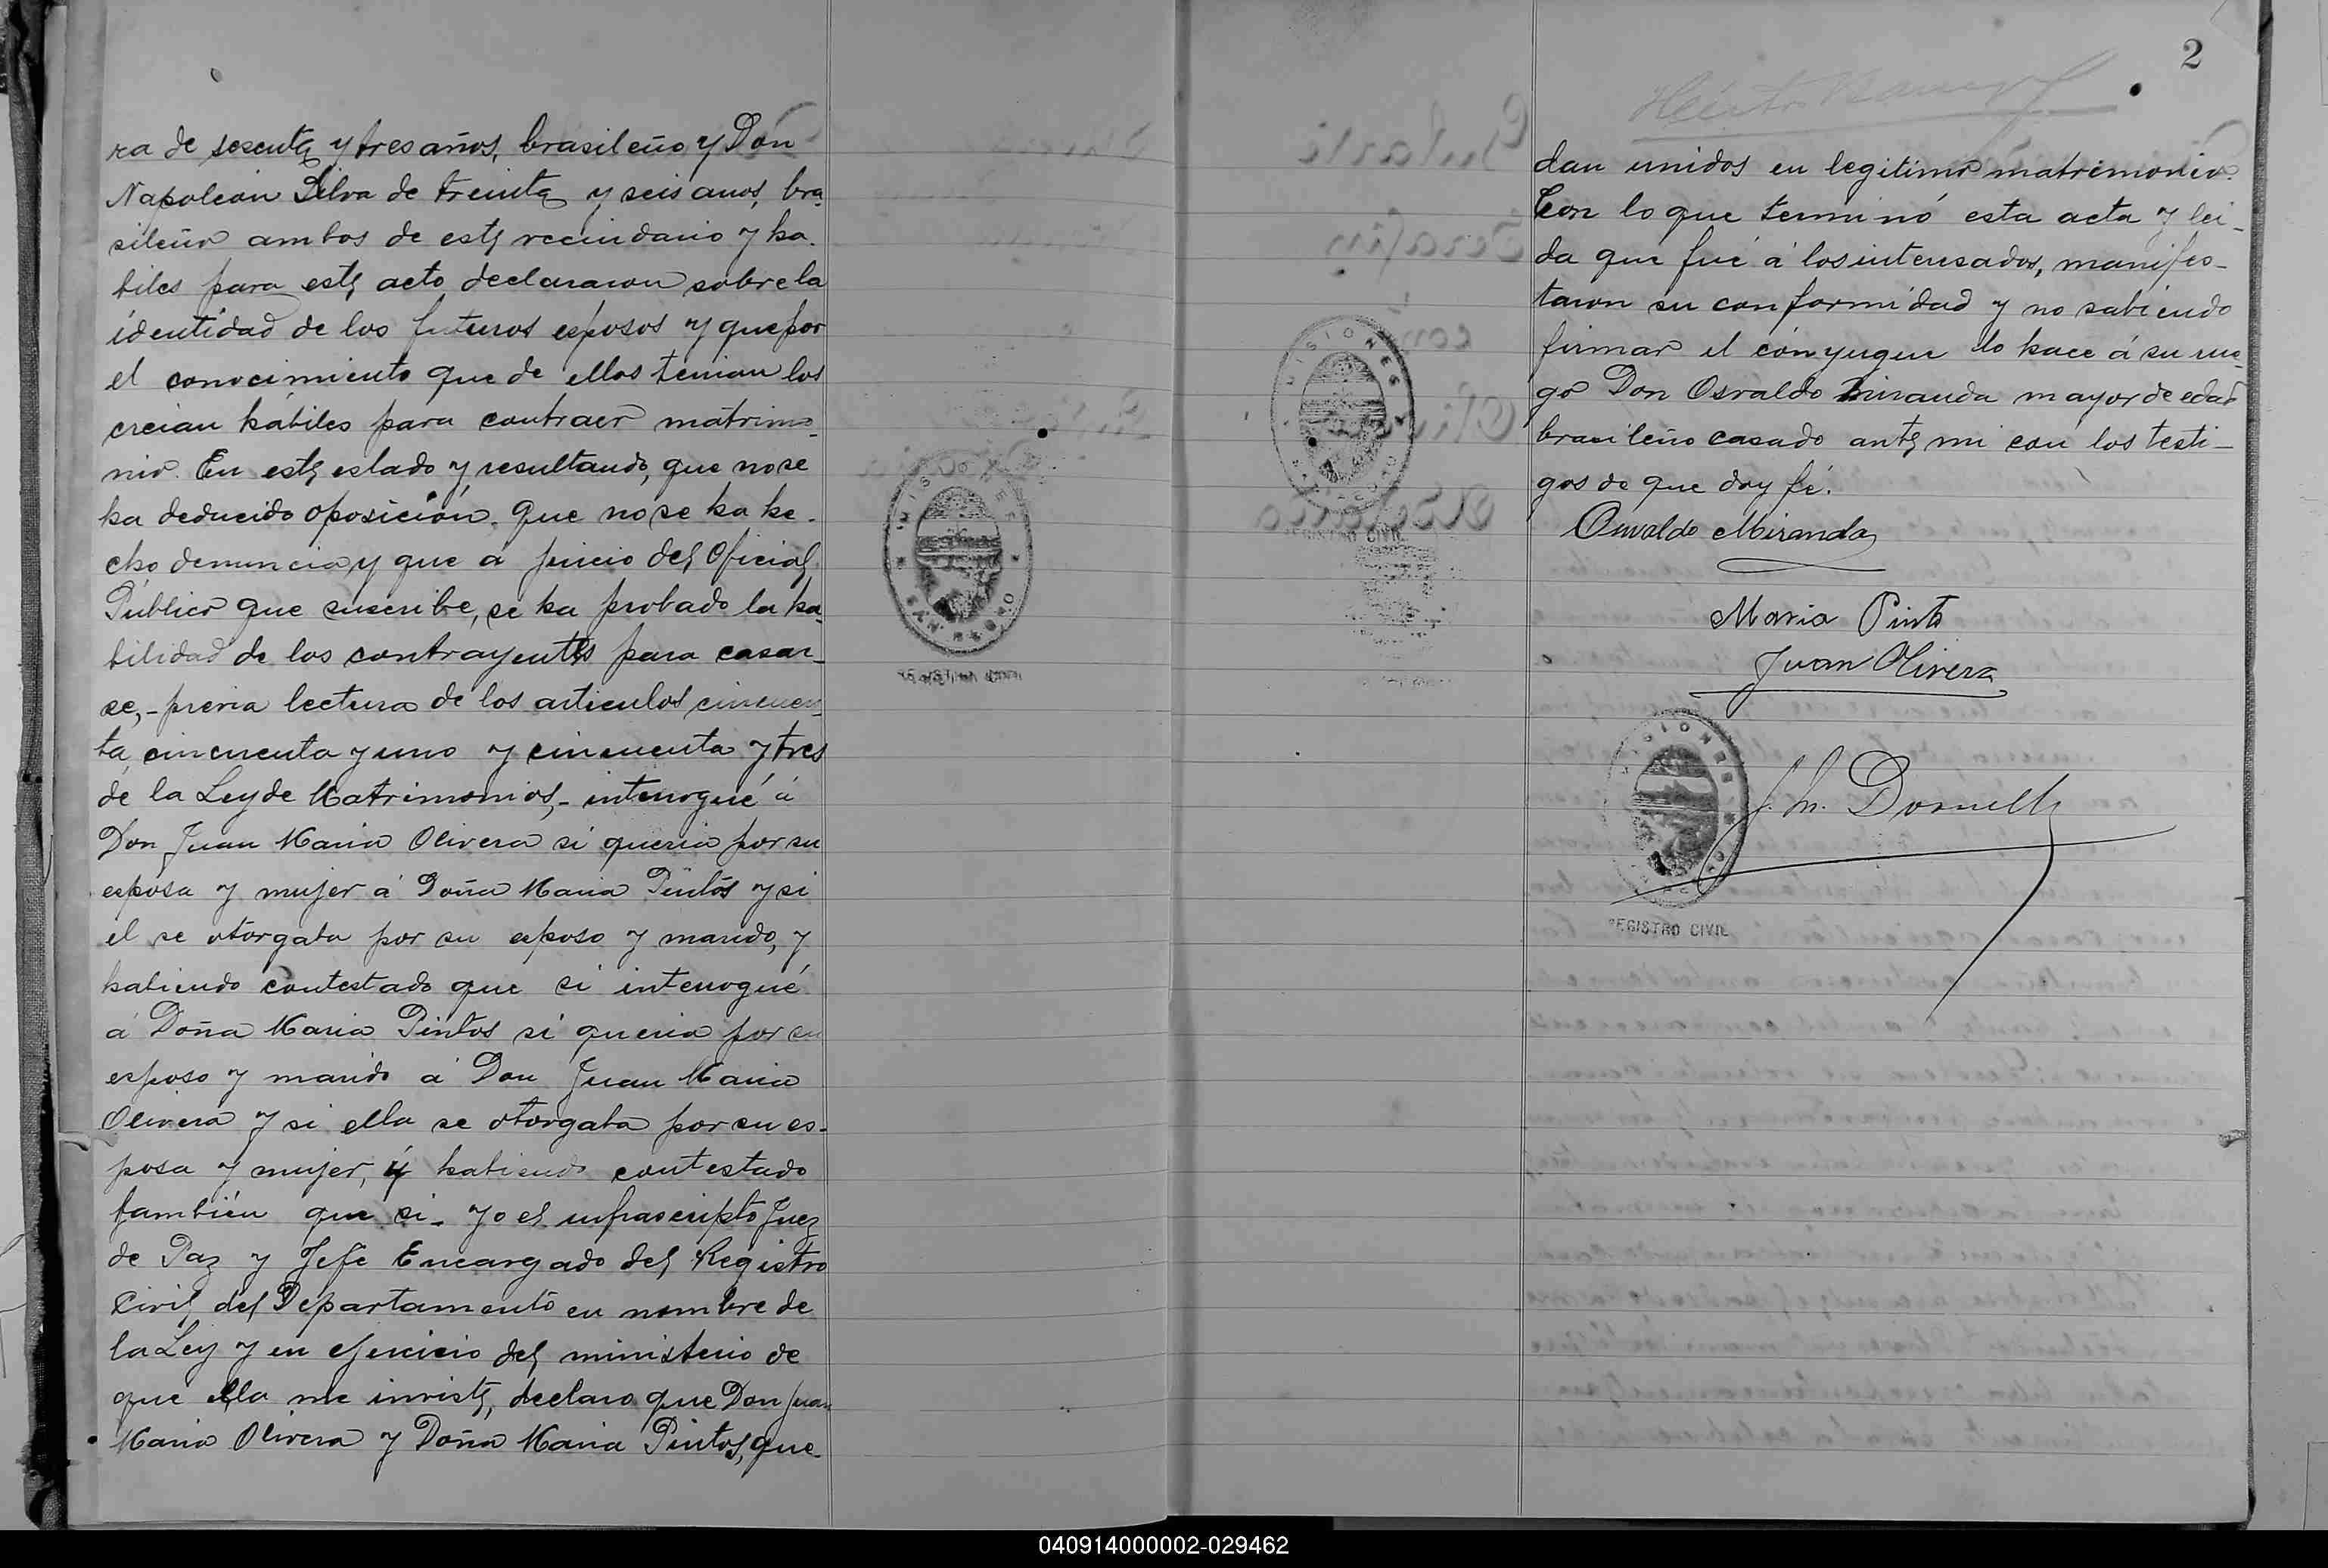 ra de sesenta y tres años, brasileño y Don
Napoleón Silva de treinta y seis años, bra-
sileño ambos de este vecindario y ha-
biles para este acto declararon sobre la
identidad de los futuros esposos y que por
el conocimiento que de ellos tenian los
creian hábiles para contraer matrimo-
nio. En este estado y resultando, que no se
ha deducido oposición. Que no se ha he-
cho denuncia y que á juicio del Oficial
Público que suscribe, se ha probado la ha-
bilidad de los contrayentes para casar-
se,- previa lectura de los articulos cincuen-
ta, cincuenta y uno y cincuenta y tres
de la Ley de Matrimonios,- interrogué á
Don Juan Maria Olivera si queria por su
esposa y mujer á Doña Maria Pintos y si
el se otorgaba por su esposo y marido, y
habiendo contestado que si interrogué
á Doña Maria Pintos si queria por su
esposo y marido á Don Juan Maria
Olivera y si ella se otorgaba por su es-
posa y mujer, y habiendo contestado
también que si- yo el infrascripto Juez
de Paz y Jefe Encargado del Registro
Civil del Departamento en nombre de
la Ley y en ejercicio del ministerio de
que ella me inviste, declaro que Don Juan
Maria Olivera y Doña Maria Pintos, que-
MISIONES
REGISTRO CIVIL
MISIONES
REGISTRO CIVIL
2
dan unidos en legitimo matrimonio.
Con lo que terminó esta acta y lei-
da que fué á los interesados, manifes-
taron su conformidad y no sabiendo
firmar el cónyugue lo hace á su rue-
go Don Osvaldo Miranda mayor de edad
brasileño casado ante mi con los testi-
gos de que doy fé.
Osvaldo Miranda
Maria Pinto
Juan Olivera
MISIONES
REGISTRO CIVIL
040914000002-029462